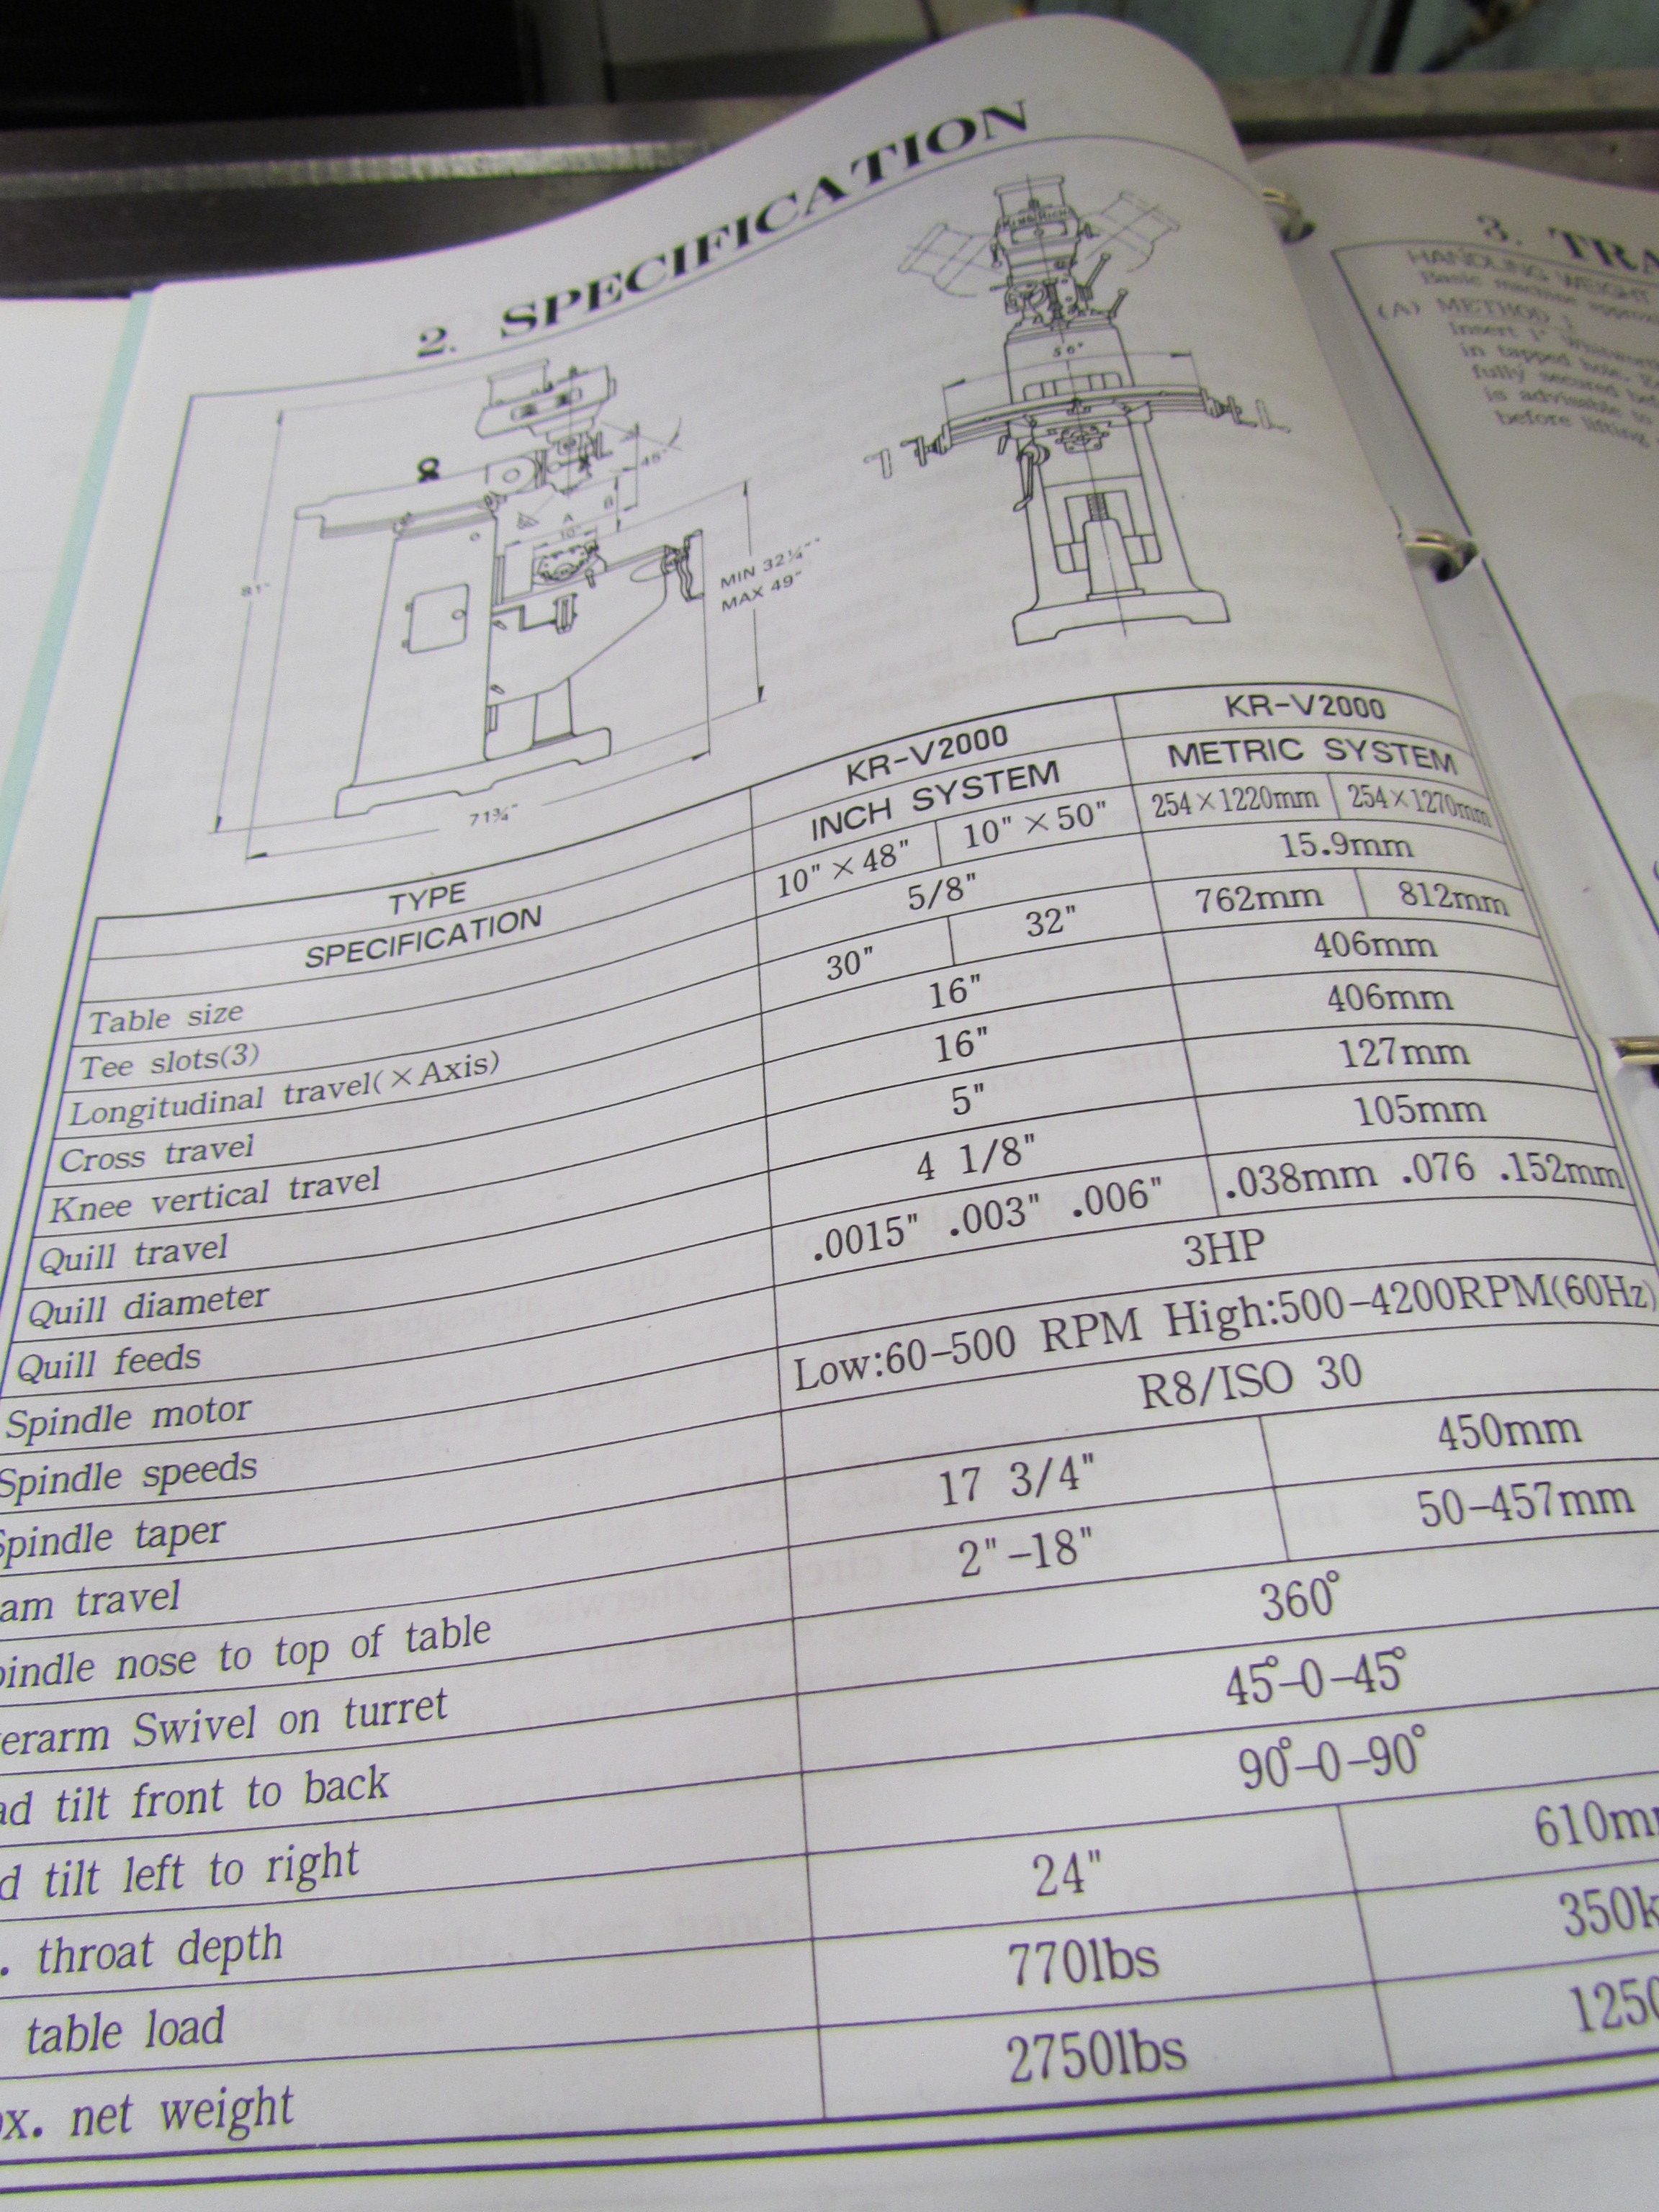 2. SPECIFICATION
KING RICH
56"
45°
8
A
B
10"
81"
MIN 32¼"
MAX 49"
71¾"
TYPE KR-V2000 KR-V2000
SPECIFICATION INCH SYSTEM METRIC SYSTEM
Table size 10" × 48" 10" × 50" 254×1220mm 254×1270mm
Tee slots(3) 5/8" 15.9mm
Longitudinal travel(×Axis) 30" 32" 762mm 812mm
Cross travel 16" 406mm
Knee vertical travel 16" 406mm
Quill travel 5" 127mm
Quill diameter 4 1/8" 105mm
Quill feeds .0015" .003" .006" .038mm .076 .152mm
Spindle motor 3HP
Spindle speeds Low:60-500 RPM High:500-4200RPM(60Hz)
Spindle taper R8/ISO 30
am travel 17 3/4" 450mm
pindle nose to top of table 2"-18" 50-457mm
erarm Swivel on turret 360°
ad tilt front to back 45°-0-45°
d tilt left to right 90°-0-90°
. throat depth 24" 610m
table load 770lbs 350k
ox. net weight 2750lbs 1250
3. TRA
HANDLING WEIGHT
Basic machine approx
(A) METHOD 1
Insert 1" Whitworth
in tapped hole.
fully secured bef
is advisable to
before lifting